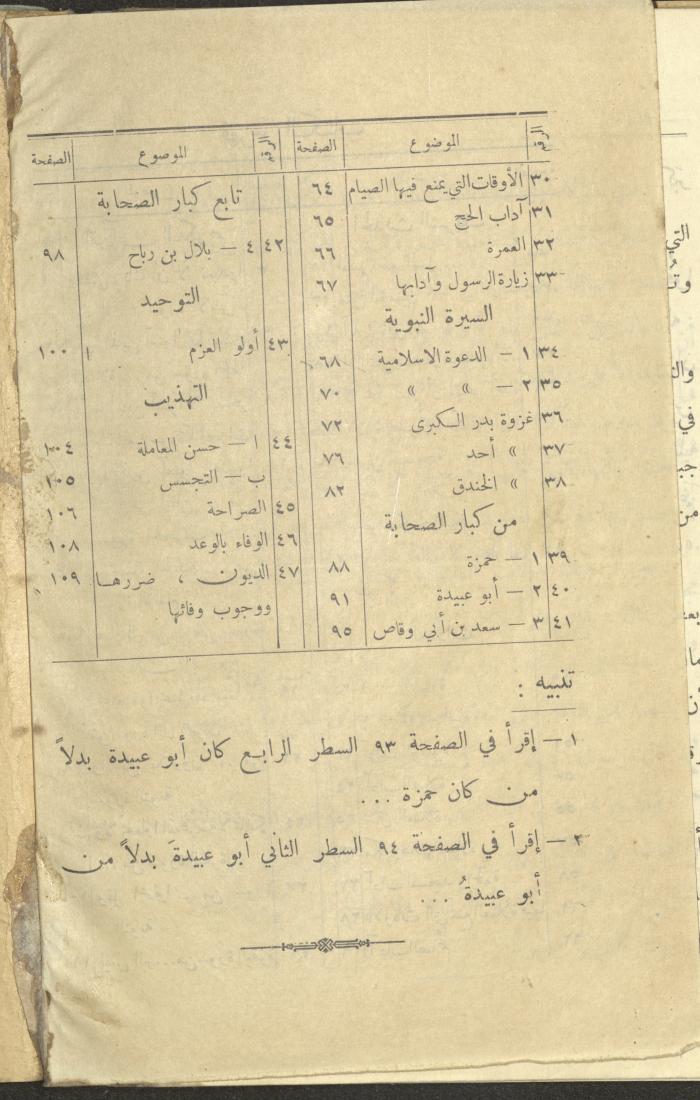 الرقم الموضوع الصفحة
٣٠ الأوقات التي يمنع فيها الصيام ٦٤
٣١ آداب الحج ٦٥
٣٢ العمرة ٦٦
٣٣ زيارة الرسول وآدابها ٦٧
السيرة النبوية
٣٤ ١ – الدعوة الاسلامية ٦٨
٣٥ ٢ – » » ٧٠
٣٦ غزوة بدر الكبرى ٧٢
٣٧ » أحد ٧٦
٣٨ » الخندق ٨٢
من كبار الصحابة
٣٩ ١ – حمزة ٨٨
٤٠ ٢ – أبو عبيدة ٩١
٤١ ٣ – سعد بن أبي وقاص ٩٥
الرقم الموضوع الصفحة
تابع كبار الصحابة
٤٢ ٤ – بلال بن رباح ٩٨
التوحيد
٤٣ أولو العزم ١٠٠
التهذيب
٤٤ ا – حسن المعاملة ١٠٤
ب – التجسس ١٠٥
٤٥ الصراحة ١٠٦
٤٦ الوفاء بالوعد ١٠٨
٤٧ الديون ، ضررها ١٠٩
ووجوب وفائها
تنبيه :
١ – إقرأ في الصفحة ٩٣ السطر الرابع كان أبو عبيدة بدلاً
من كان حمزة ...
٢ – إقرأ في الصفحة ٩٤ السطر الثاني أبو عبيدةَ بدلاً من
أبو عبيدةُ ...